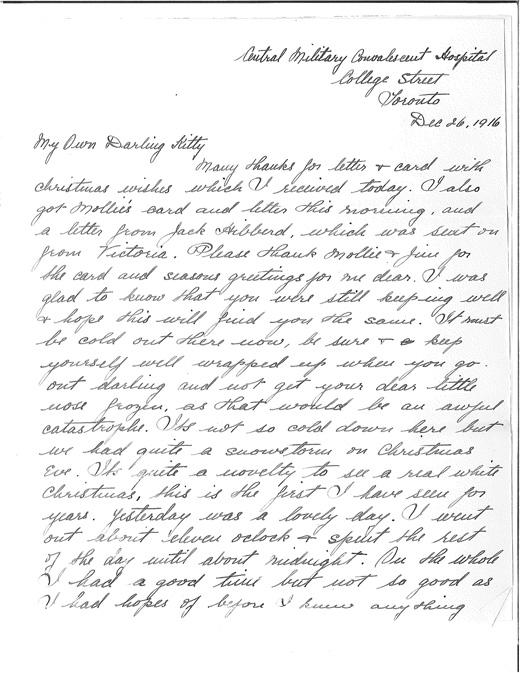 Central Military Convalescent Hospital
College Street
Toronto
Dec 26, 1916
My Own Darling Kitty
Many thanks for letter + card with
christmas wishes which I recived today. I also
got Mollie's card and letter this morning, and
a letter from Jack Hibberd, which was sent on
from Victoria. Please thank Mollie + Jim for
the card and seasons greetings for me dear. I was
glad to know that you were still keeping well
+ hope this will find you the same. It must
be cold out there now, be sure + keep
yourself well wrapped up when you go
out darling and not get your dear little
nose frozen, as that would be an awful
catastrophe. Its not so cold down here but
we had quite a snowstorm on Christmas
Eve. Its quite a novelty to see a real white
Christmas, this is the first I have seen for
years. Yesterday was a lovely day. I went
out about eleven oclock + spent the rest
of the day until about midnight. On the whole
I had a good time but not so good as
I had hopes of before I knew anything